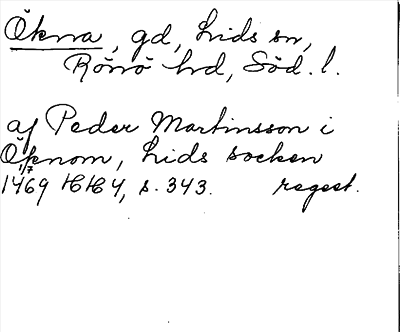 Ökna, gd, Lids sn,
Rönö hd, Söd. l.
af Peder Martinsson i
Öknom, Lids socken
1/7
1469 HH 4, s. 343. regest.